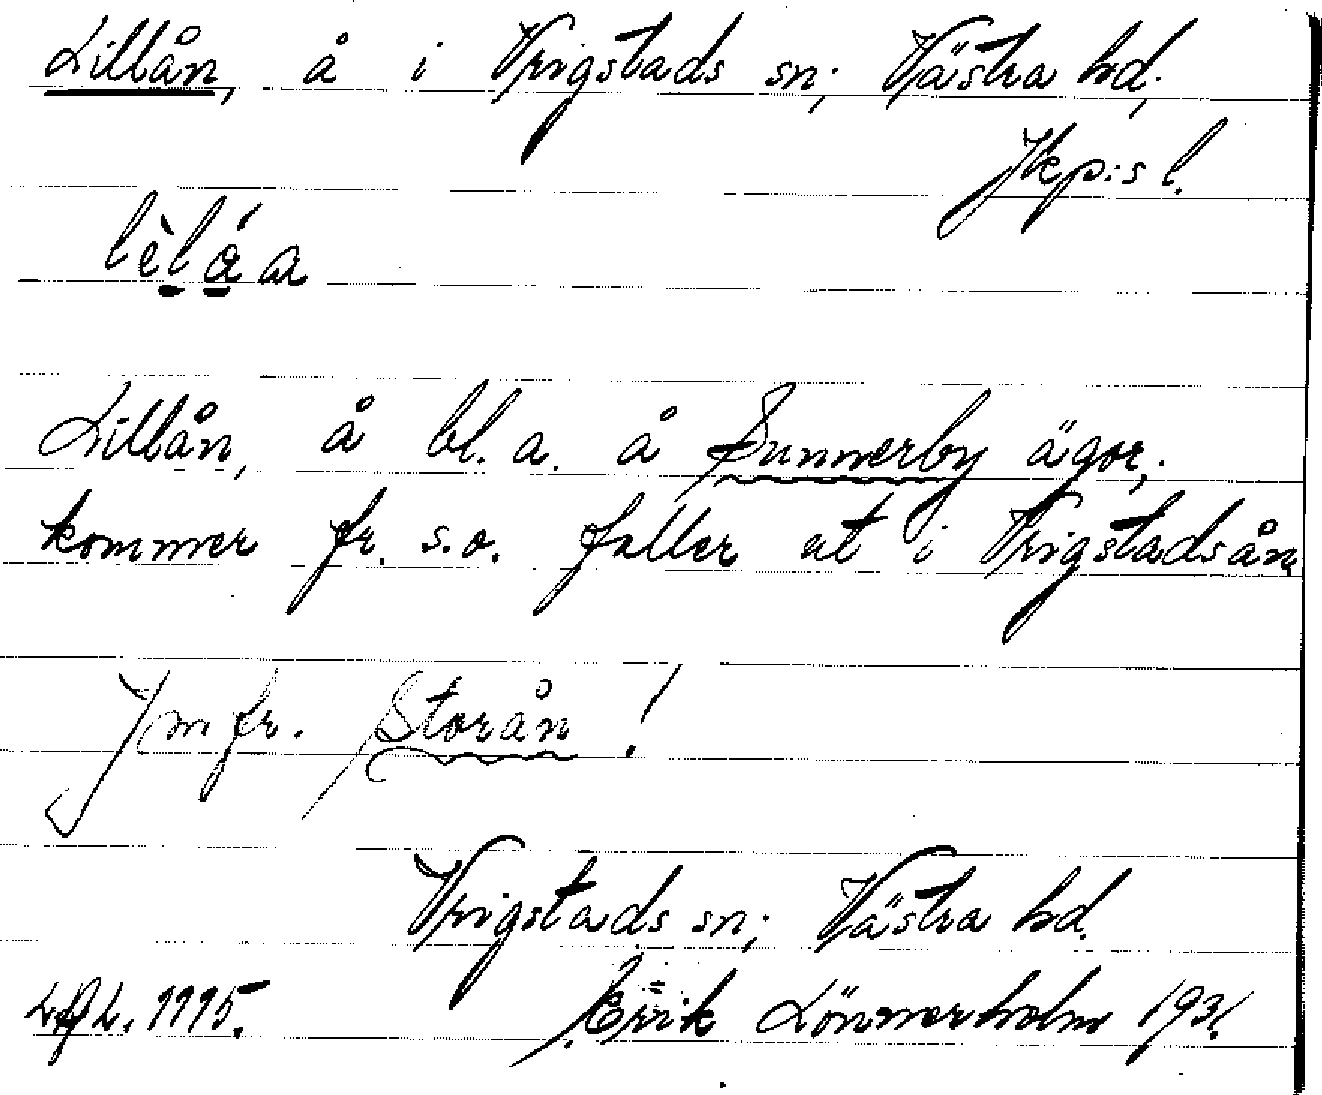 Lillån, å i Vrigstads sn; Västra hd,
Jkp:s l.
lèlá a
Lillån, å bl. a. å Sunnerby ägor,;
kommer fr. s.o. faller ut i Vrigstadsån.
Jmfr. Storån !
Vrigstads sn; Västra hd.
1115. Erik Lönnerholm 1931.